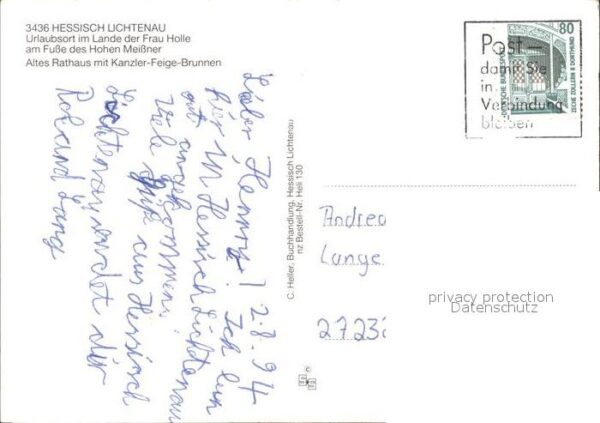 3436 HESSISCH LICHTENAU
Urlaubsort im Lande der Frau Holle
am Fuße des Hohen Meißner
Altes Rathaus mit Kanzler-Feige-Brunnen
2.8.94
Lieber Henning! Ich bin
hier in Hessisch Lichtenau
gut angekommen.
Viele Grüße aus Hessisch
Lichtenau sendet dir
Roland Lang
C. Heller, Buchhandlung, Hessisch Lichtenau
nz Bestell-Nr. Heli 130
Post –
damit Sie
in
Verbindung
bleiben
80
DEUTSCHE BUNDESPOST
ZECHE ZOLLERN II DORTMUND
Andrea
Lange
2723
privacy protection
Datenschutz